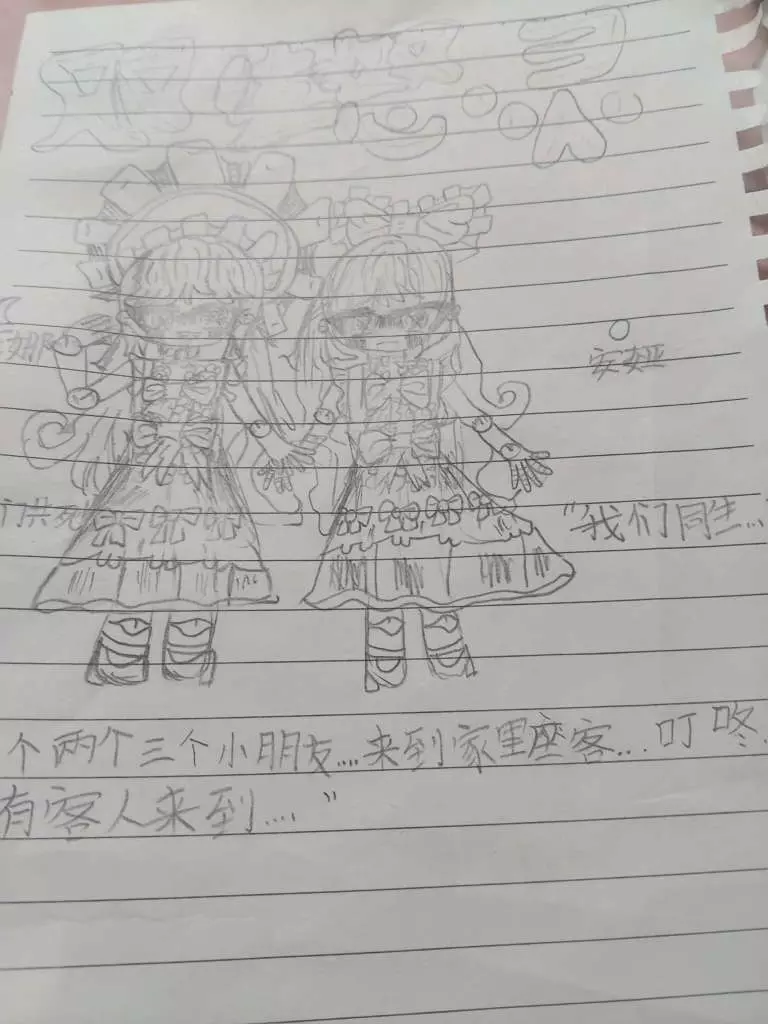 安娅
"我们同生...
们共死
个两个三个小朋友....来到家里座客...叮咚
有客人来到...."